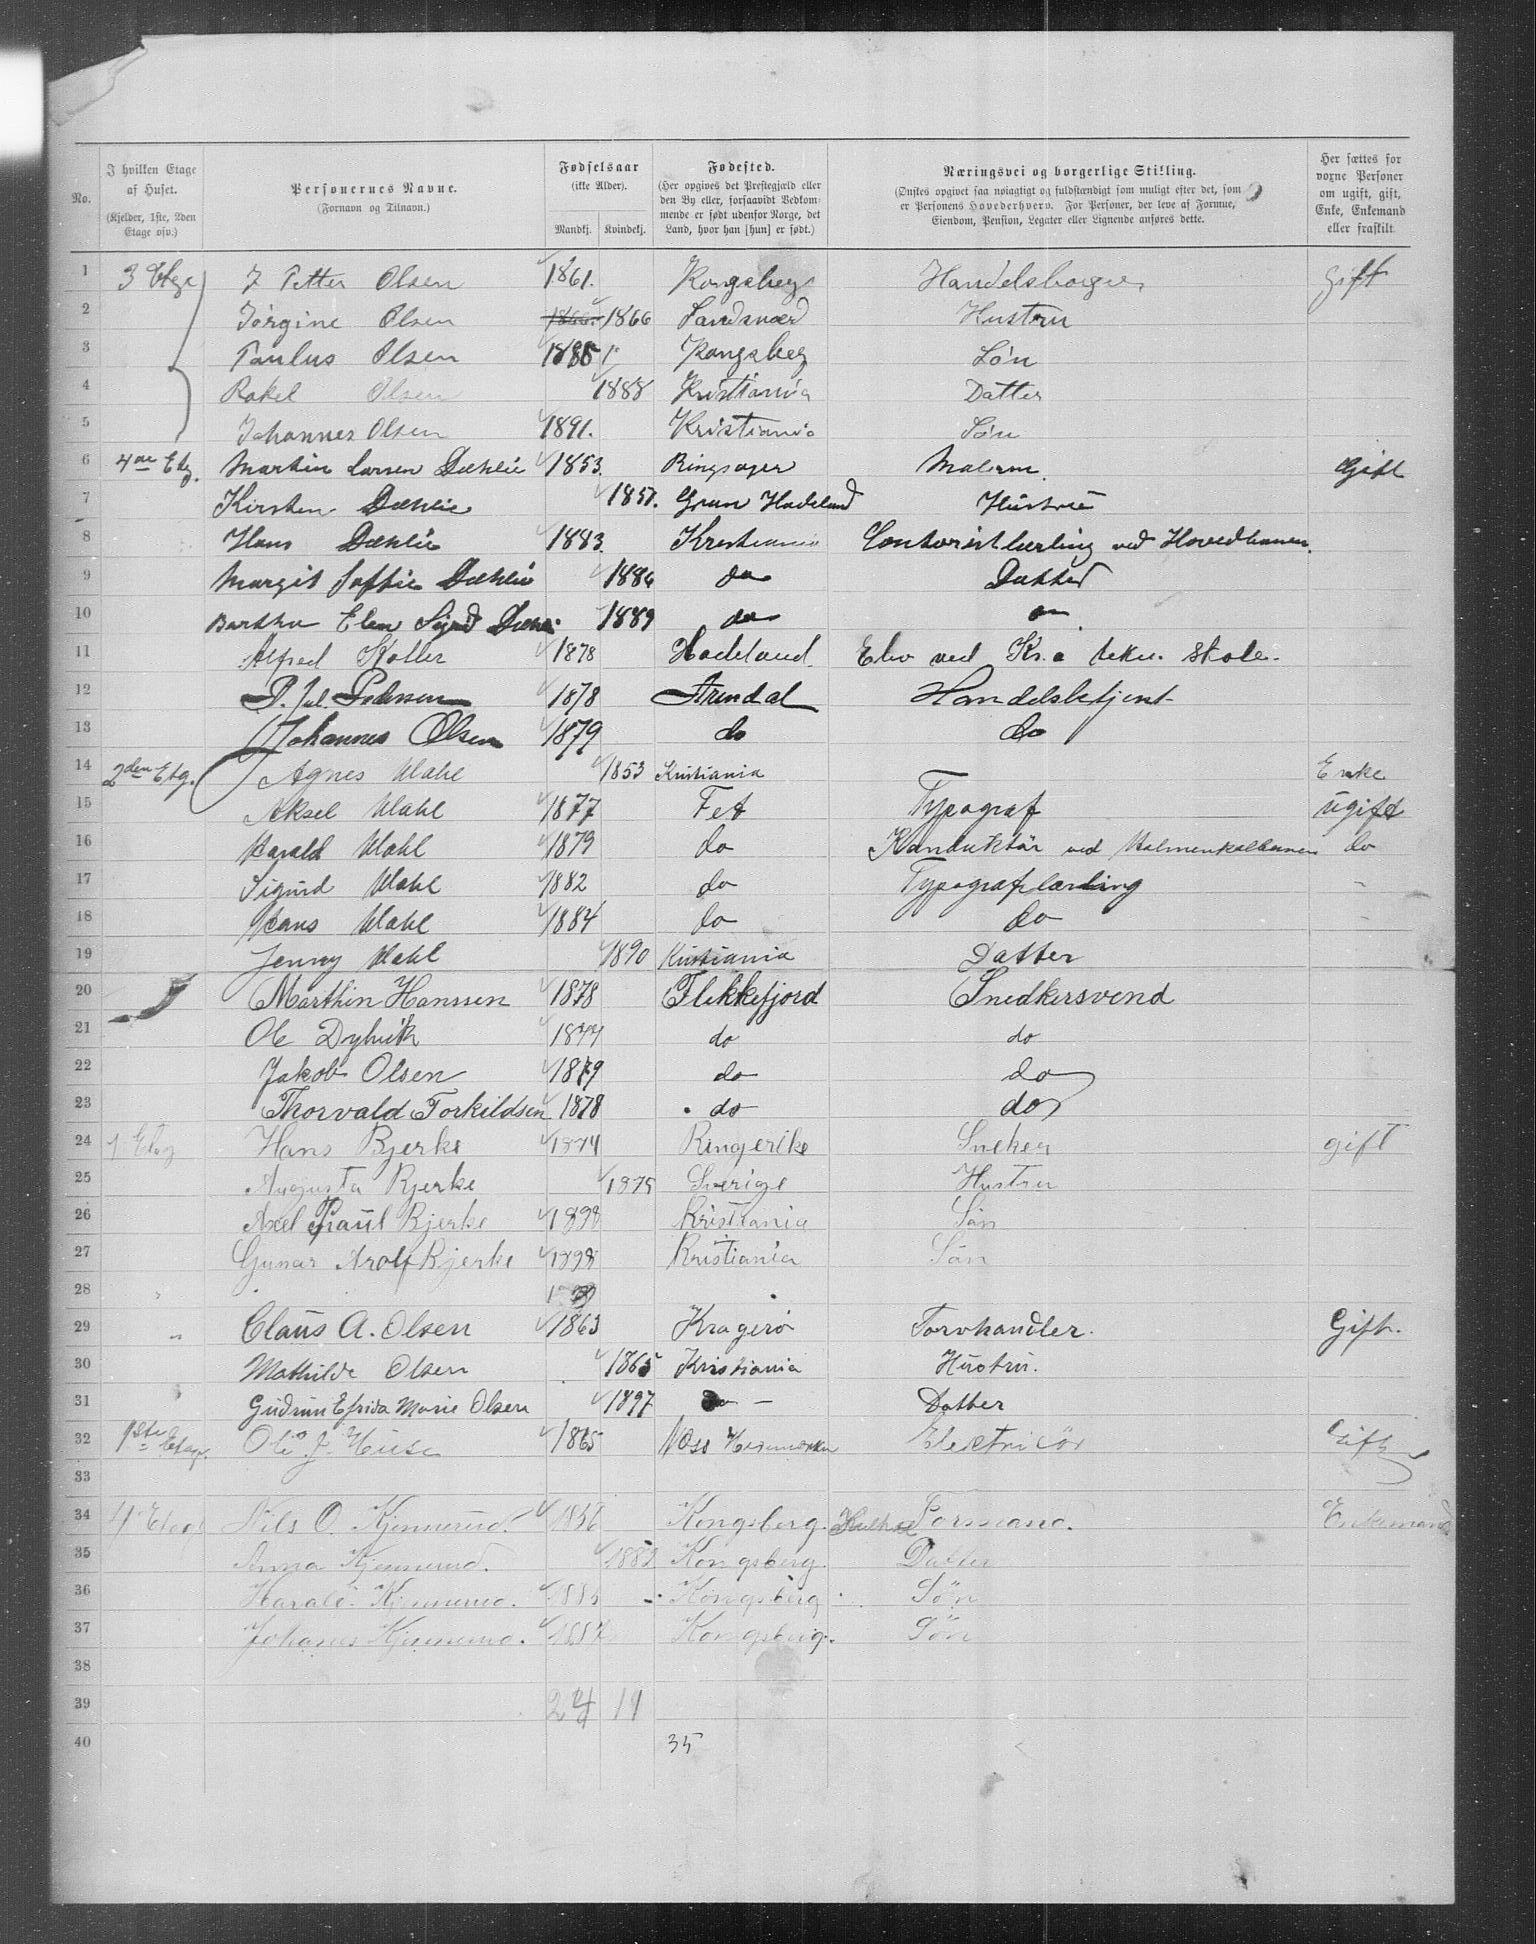 No. | I hvilken Etage af Huset. (Kjelder, 1ste, 2den Etage osv.) | Personernes Navne. (Fornavn og Tilnavn.) | Fødselsaar (ikke Alder). Mandkj. Kvindekj. | Fødested. (Her opgives det Prestegjæld eller den By eller, forsaavidt Vedkommende er født udenfor Norge, det Land, hvor han [hun] er født.) | Næringsvei og borgerlige Stilling. (Ønskes opgivet saa nøiagtigt og fuldstændigt som muligt efter det, som er Personens Hovederhverv. For Personer, der leve af Formue, Eiendom, Pension, Legater eller Lignende anføres dette. | Her sættes for voxne Personer om ugift, gift, Enke, Enkemand eller fraskilt.
1 3 Etge J Petter Olsen 1861. Kongsberg Handelsborger Gift
2 Jørgine Olsen 1866 1866 Sandsværd Hustru
3 Paulus Olsen 1885 Kongsberg Søn
4 Rakel Olsen 1888 Kristiania Datter
5 Johannes Olsen 1891. Kristiania Søn
6 4de Etg. Martin Larsen Dæhlie 1853. Ringsager Malerm. Gift
7 Kirsten Dæhlie 1857. Gran Hadeland Hustru
8 Hans Dæhlie 1883. Kristiania Contoristlærling ved Hovedbanen.
9 Margit Soffie Dæhlie 1886 do Datter
10 Barthe Elen Sigrid Dæhlie 1889 do do
11 Alfred Koller 1878 Hadeland. Elev ved Kr.a tekn. Skole.
12 P. Jul. Pedersen 1878 Arendal Handelsbetjent
13 Johannes Olsen 1879 do do
14 2den Etg. Agnes Wahl 1853 Kristiania Enke
15 Aksel Wahl 1877 Fet Typograf ugift
16 Harald Wahl 1879 do Konduktør ved Holmenkolbanen do
17 Sigurd Wahl 1882 do Typograflærling "
18 Hans Wahl 1884 do do "
19 Jenny Wahl 1890 Kristiania Datter
20 Marthin Hanssen 1878 Flekkefjord Snedkersvend
21 Ole Dybvik 1877 do do
22 Jakob Olsen 1879 do do
23 Thorvald Torkildsen 1878 do do
24 1 Etag Hans Bjerke 1874 Ringerike Sneker gift
25 Augusta Bjerke 1875 Sverige Hustru
26 Axel Paul Bjerke 1898 Kristiania Sän
27 Gunar Arolf Bjerke 1898 Kristiania Sän
28
29 " Claus A. Olsen 1863 Kragerø Torvhandler. Gift.
30 Mathilde Olsen 1865 Kristiania Hustru.
31 Gudrun Efrida Marie Olsen 1897 do – Datter
32 1ste Etage. Ole J. Huse 1865 Voss Electricör Gift
33
34 4 Etage Nils O. Kjennerud. 1856 Kongsberg. Formand. Enkemand
35 Anna Kjennerud. 1882 Kongsberg. Datter
36 Harald Kjennerud. 1885 Kongsberg Søn
37 Johanes Kjennerud. 1887 Kongsberg. Søn
38
39 24 11
40 35